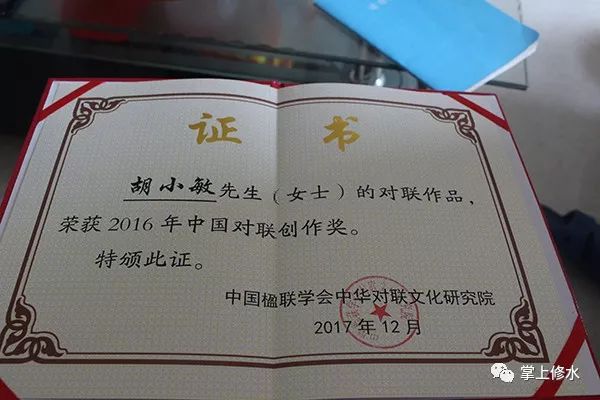 证书
胡小敏先生(女士)的对联作品,
荣获2016年中国对联创作奖。
特颁此证。
中国楹联学会中华对联文化研究院
2017年12月
掌上修水